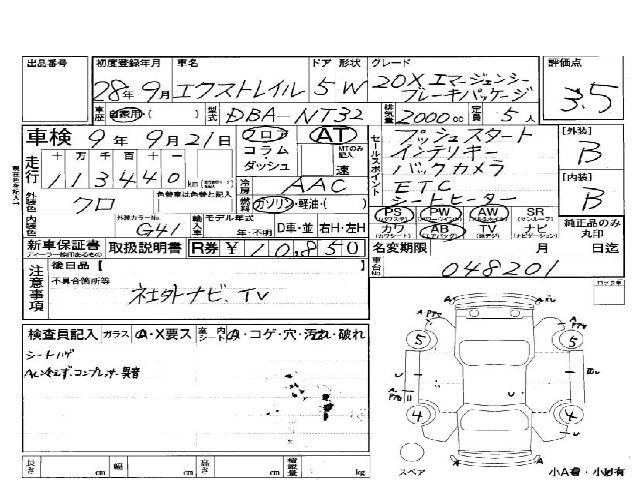 出品番号 初度登録年月 車名 ドア 形状 グレード 評価点
28年9月 エクストレイル 5 W 20X エマージェンシーブレーキパッケージ 3.5
車歴 自家用・( ) 型式 DBA-NT32 排気量 2000cc 定員 5人
車検 9年9月21日 フロア AT セールスポイント プッシュスタート [外装]
走行 十 万 千 百 十 一 コラム・ダッシュ MTのみ記入 速 インテリキー B
113440 km 冷房 AAC バックカメラ
外装色 クロ 色替車は色替と記入 燃料 ガソリン・軽油・( ) ETC [内装]
シートヒーター B
内装色 外装カラーNo. G41 輸入車 モデル年式 年・不明 D車・並 右H・左H
PS PW AW SR (サンルーフ) 純正品のみ丸印
カワ (カワシート) AB (エアバッグ) TV ナビ (ナビゲーション)
新車保証書 取扱説明書 R券 ¥10,850 名変期限 月 日迄
車台No. 048201
注意事項 後日品【 】
不具合箇所等
社外ナビ、TV
ロック車
検査員記入 ガラス A・X要ス 室内 シート内 A・コゲ・穴・汚れ・破れ
シートハゲ
AC冷えず・コンプレッサー異音
A AX
A U
5 5
U U
4 4
A A
スペア 小A有・小U有
長さ cm 幅 cm 高さ cm 積載量 kg